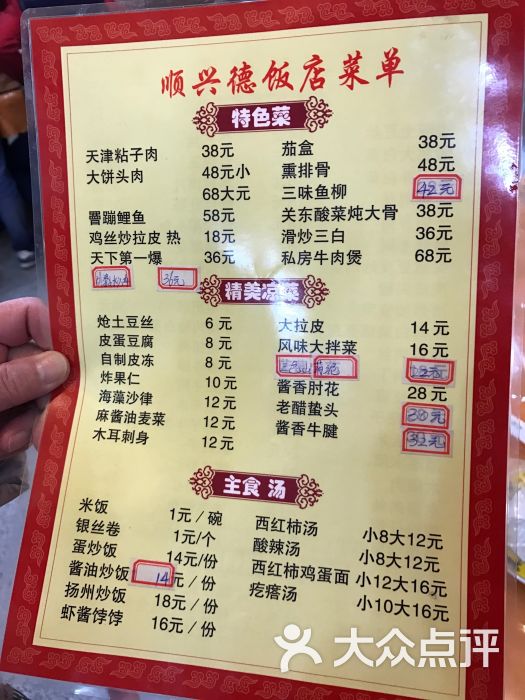 顺兴德饭店菜单
特色菜
天津粘子肉 38元
大饼头肉 48元小
68大元
罾蹦鲤鱼 58元
鸡丝炒拉皮 热 18元
天下第一爆 36元
36元
茄盒 38元
熏排骨 48元
三味鱼柳 42元
关东酸菜炖大骨 38元
滑炒三白 36元
私房牛肉煲 68元
精美凉菜
炝土豆丝 6 元
皮蛋豆腐 8 元
自制皮冻 8 元
炸果仁 10 元
海藻沙律 12 元
麻酱油麦菜 12 元
木耳刺身 12 元
大拉皮 14 元
风味大拌菜 16 元
酱香肘花 28 元
老醋蛰头 38元
酱香牛腱 32元
主食 汤
米饭 1元 / 碗
银丝卷 1元/个
蛋炒饭 14元/份
酱油炒饭 14元 / 份
扬州炒饭 18元 / 份
虾酱饽饽 16元 / 份
西红柿汤 小8大12元
酸辣汤 小8大12元
西红柿鸡蛋面 小12大16元
疙瘩汤 小10大16元
大众点评